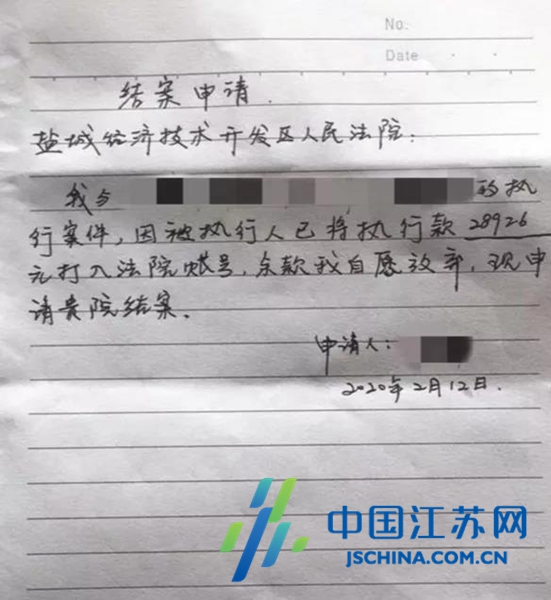 No.
Date
结案申请
盐城经济技术开发区人民法院:
我与 执
行案件，因被执行人已将执行款28926
元打入法院帐号，余款我自愿放弃，现申
请贵院结案。
申请人:
2020年2月12日.
中国江苏网
JSCHINA.COM.CN